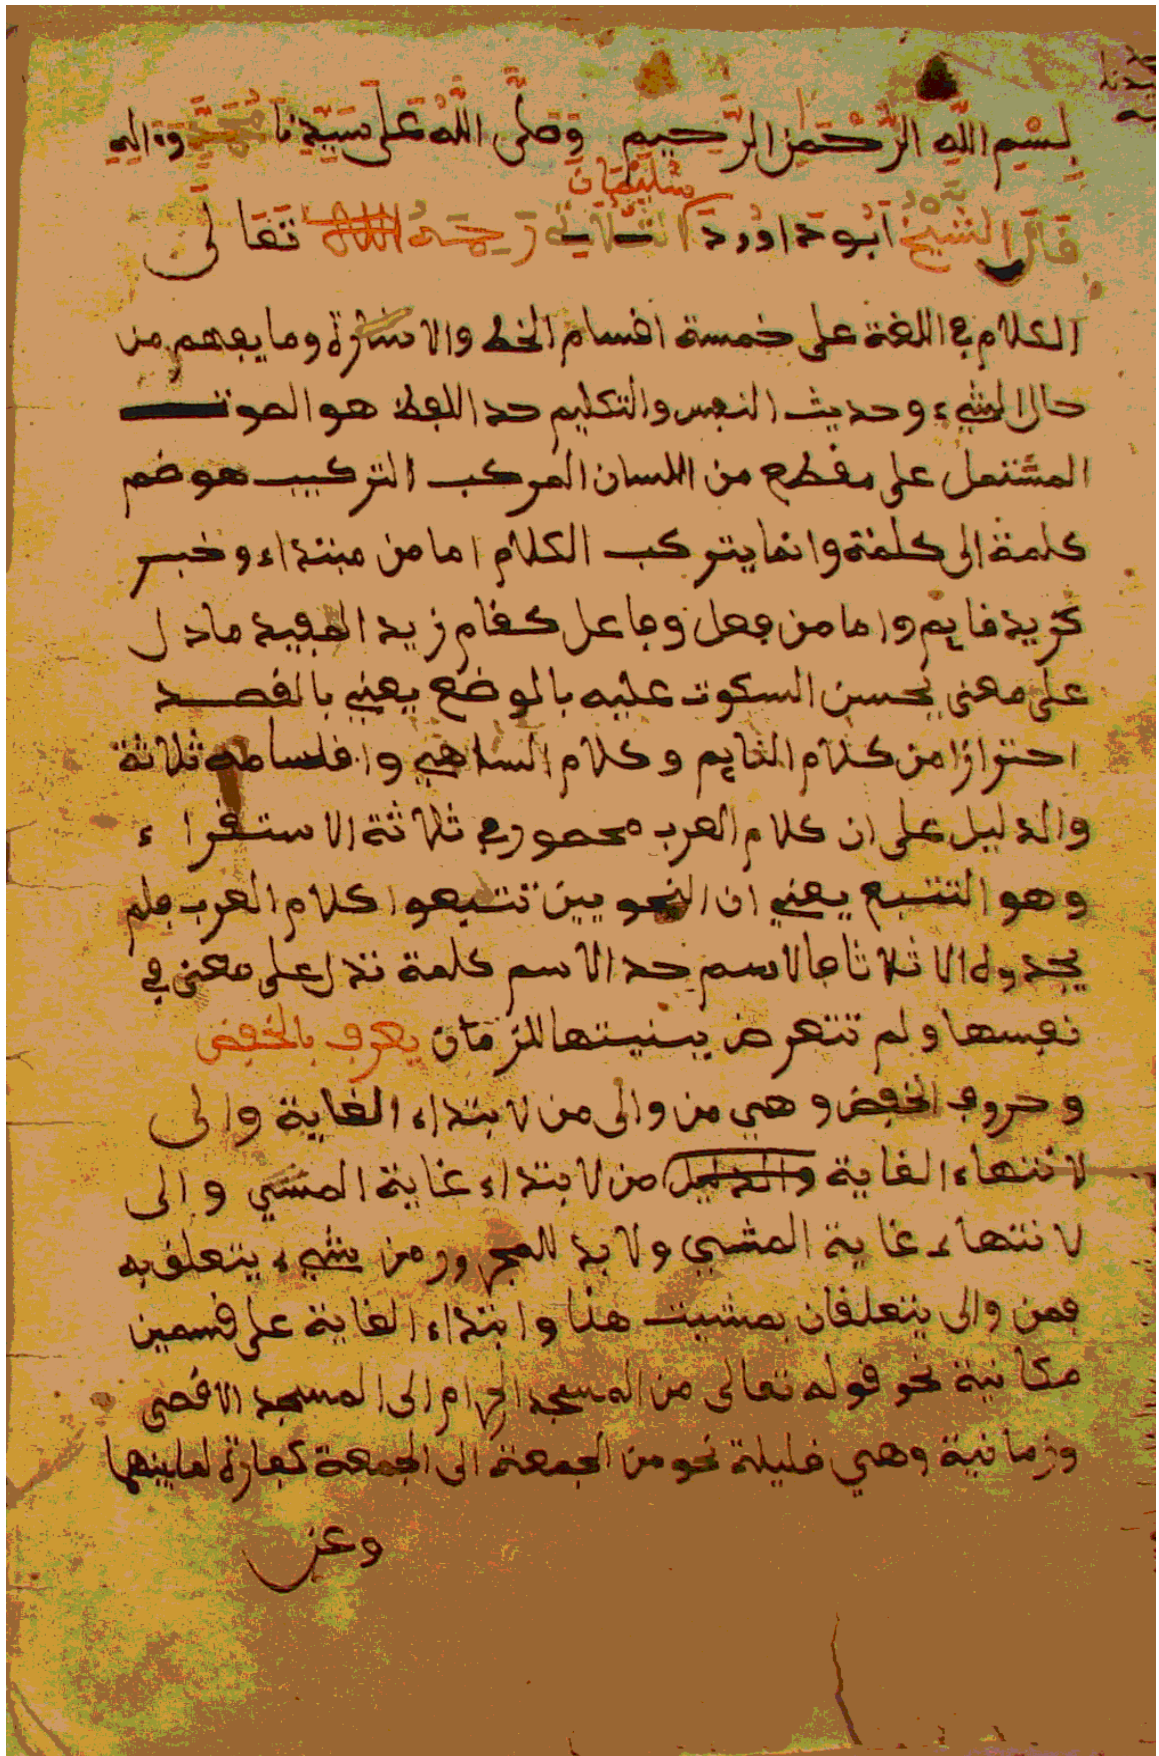 بِسْمِ اللَّهِ الرَّحْمَٰنِ الرَّحِيمِ وَصَلَّى اللَّهُ عَلَى سَيِّدِنَا مُحَمَّدٍ وَءَالِهِ
سليمان
قال الشيخ أبو داوود رحمه الله تعالى
الكلام في اللغة على خمسة اقسام الخط والاشارة وما يفهم من
حال الشيء وحديث النفس والتكليم حد اللفظ هو الصوت
المشتمل على مقطع من اللسان المركب التركيب هو ضم
كلمة الى كلمة وانما يتركب الكلام اما من مبتداء وخبر
كزيد قايم واما من فعل وفاعل كقام زيد المفيد ما دل
على معنى يحسن السكوت عليه بالوضع يعني بالقصد
احترازا من كلام النايم وكلام الساهي واقسامه ثلاثة
والدليل على ان كلام العرب محصور في ثلاثة الاستقراء
وهو التتبع يعني ان النحويين تتبعوا كلام العرب فلم
يجدوه الا ثلاثا فالاسم حد الاسم كلمة تدل على معنى في
نفسها ولم تتعرض ببنيتها للزمان يعرف بالخفض
وحروف الخفض وهي من والى من لابتداء الغاية والى
لانتهاء الغاية والدليل من لابتداء غاية المشي والى
لانتهاء غاية المشي ولا بد للمجرور من شيء يتعلق به
فمن والى يتعلقان بمشيت هنا وابتداء الغاية على قسمين
مكانية نحو قوله تعالى من المسجد الحرام الى المسجد الاقصى
وزمانية وهي قليلة نحو من الجمعة الى الجمعة كفارة لما بينهما
وعن